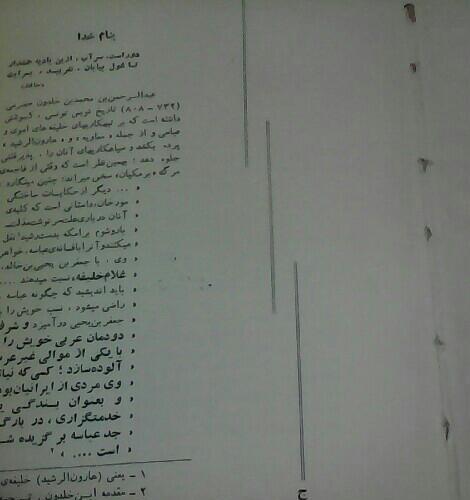 بنام خدا
دور است سر آب ، ازین بادیه هشدار
تا غول بیابان ، نفریبد ، بسرابت
«حافظ»
عبدالرحمن بن محمد بن خلدون حضرمی
(۷۳۲ - ۸۰۸) تاریخ نویس تونسی ، کوشش
داشته است که بر تبهکاریهای خلیفه های اموی و
عباسی و از جمله « معاویه » و « هارون الرشید »
پرده بکشد و سیاهکاریهای آنان را ، پذیرفتنی
جلوه دهد ؛ بهمین نظر است که وقتی از فاجعه‌ی
مرگ « برمکیان » سخن میراند؛ چنین مینگارد :
« ... دیگر از حکایات ساختگی
« مورخان، داستانی است که کلیه‌ی
« آنان درباره‌ی علت سرنوشت مذلت
« بار و شوم برامکه بدست رشید؛ نقل
« میکنند و آنرا با فسانه‌ی عباسه، خواهر
« وی ، با جعفر بن یحیی بن خالد،
« غلام خلیفه، نسبت میدهند ....
« باید اندیشید که چگونه عباسه
« راضی میشود ، نسب خویش را با
« جعفر بن یحیی درآمیزد و شرف
« دودمان عربی خویش را
« با یکی از موالی غیر عرب
« آلوده سازد ؛ کسی که نیای
« وی مردی از ایرانیان بود
« و بعنوان بندگی یا
« خدمتگزاری ، در بارگاه
« جد عباسه برگزیده شده
« است .... » ۲
۱ - یعنی (هارون الرشید) خلیفه‌ی
۲ - مقدمه ابن خلدون ،
ج